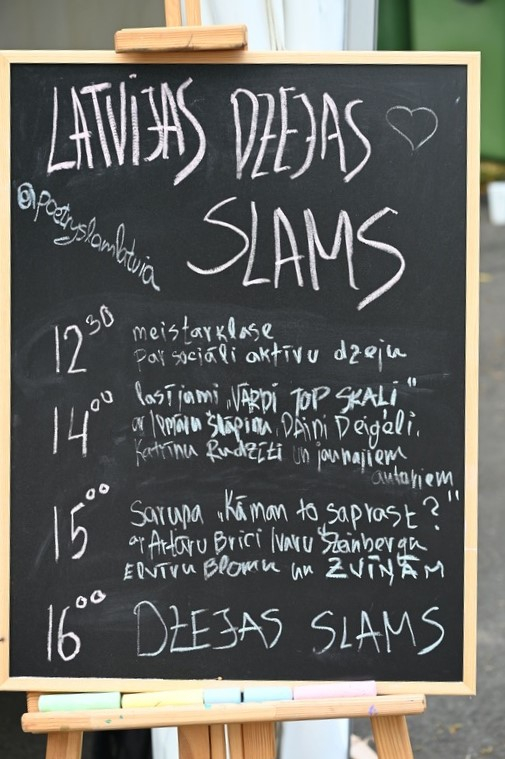 LATVIJAS DZEJAS
SLAMS
@poetryslamlatvia
12³⁰ meistarklase
par sociāli aktīvu dzeju
14⁰⁰ lasījumi „VĀRDI TOP SKAĻI"
ar Ingmāru Šlāpinu, Daini Deigeli,
Katrīnu Rudzīti un jaunajiem
autoriem
15⁰⁰ Saruna „Kā man to saprast?"
ar Artūru Brici Ivaru Šteinbergu
Elvīru Blomu un ZVIŅĀM
16⁰⁰ DZEJAS SLAMS